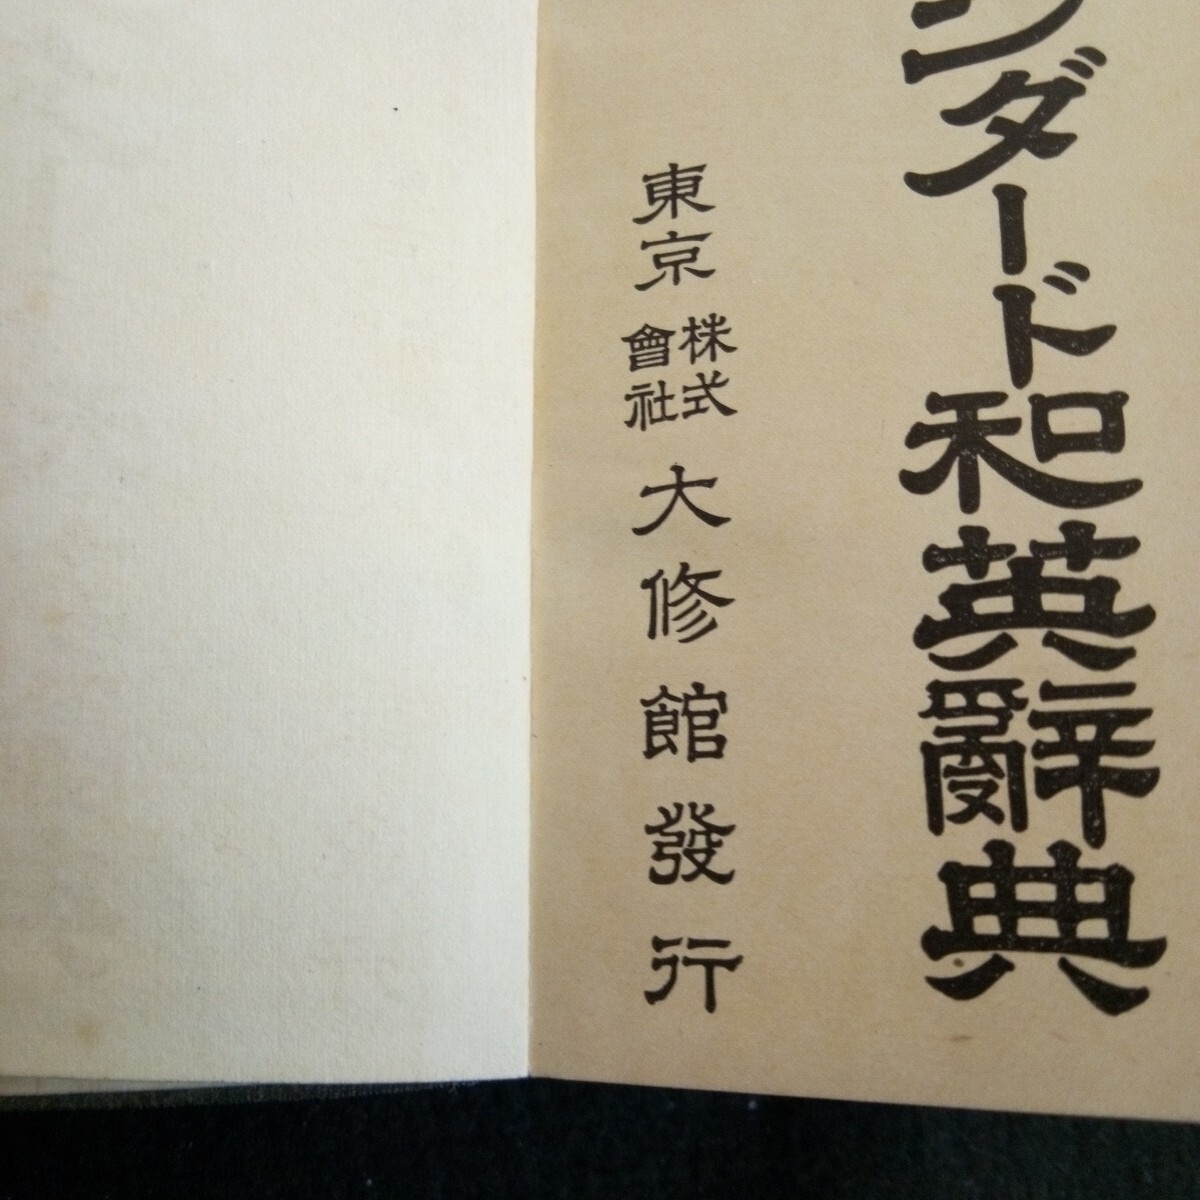 ンダード和英辭典
東京株式會社大修館發行